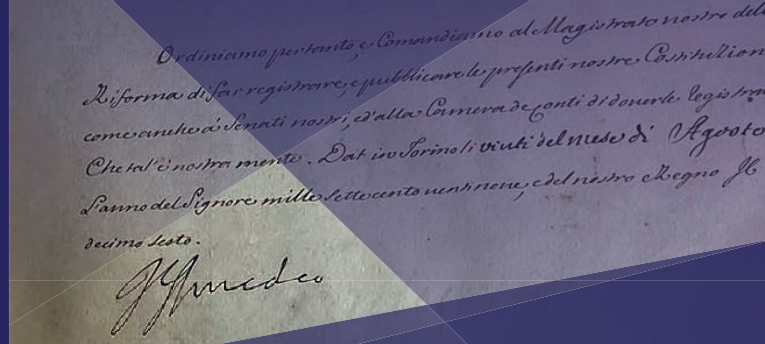 Ordiniamo pertanto, e Comandiamo al Magistrato nostro della
Riforma di far registrare, e pubblicare le presenti nostre Costituzion
come anche a' Senati nostri, ed alla Camera de Conti di doverle registrar
Che tal' è nostra mente. Dat in Torino li vinti del mese di Agosto
L'anno del Signore mille settecento ventinove, e del nostro Regno Il
decimo sesto.
V Amedeo